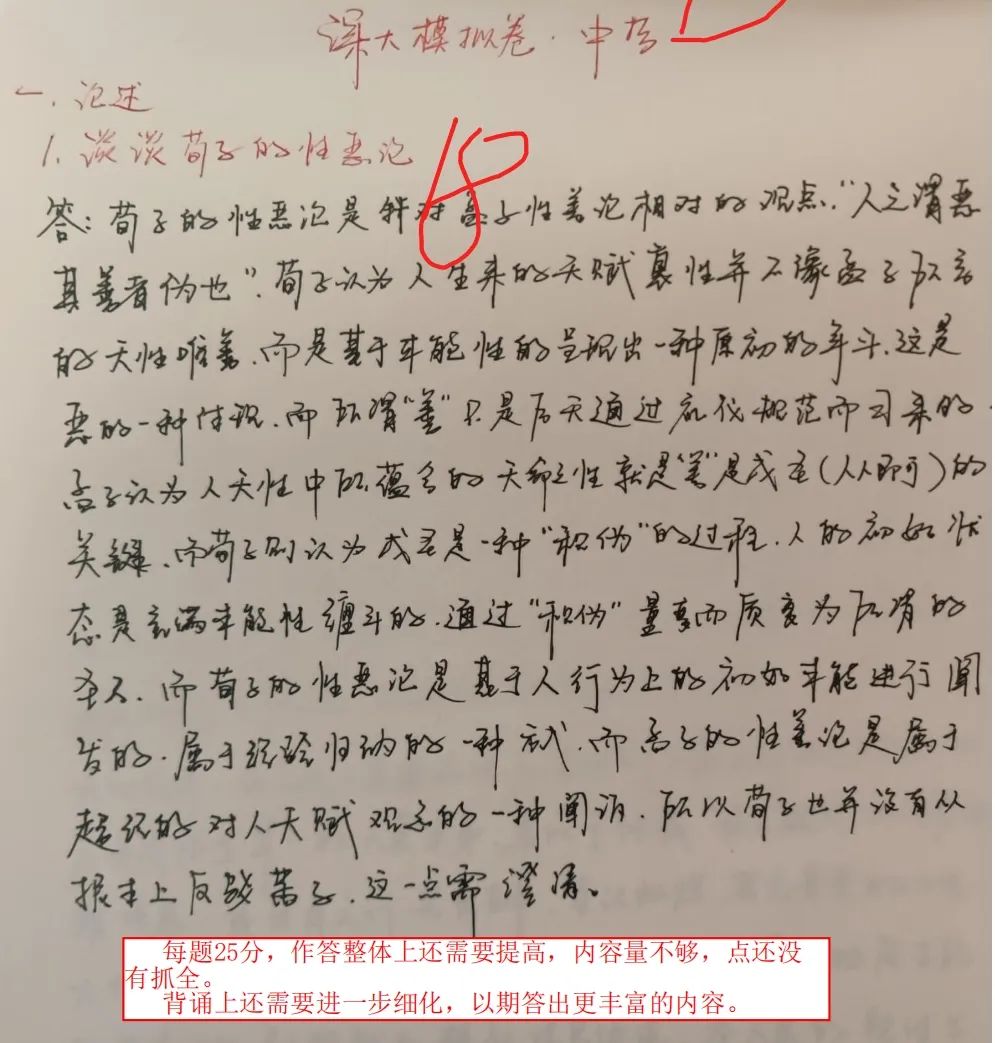 深大模拟卷·中哲
一、论述
1. 谈谈荀子的性恶论
18
答：荀子的性恶论是针对孟子性善论相对的观点."人之谓恶
其善者伪也".荀子认为人生来的天赋禀性并不像孟子所言
的天性唯善、而是基于本能性的呈现出一种原初的争斗.这是
恶的一种体现.而所谓"善"只是后天通过礼仪规范而习来的.
孟子认为人天性中所蕴含的天命之性就是"善"是成圣(人人即可)的
关键.而荀子则认为成圣是一种"积伪"的过程.人的初始状
态是充满本能性缠斗的.通过"积伪"量变而质变为所谓的
圣人.而荀子的性恶论是基于人行为上的初始本能进行阐
发的.属于经验归纳的一种方式.而孟子的性善论是属于
超越的对人天赋观念的一种阐释.所以荀子也并没有从
根本上反驳孟子.这一点需澄清。
每题25分，作答整体上还需要提高，内容量不够，点还没
有抓全。
背诵上还需要进一步细化，以期答出更丰富的内容。